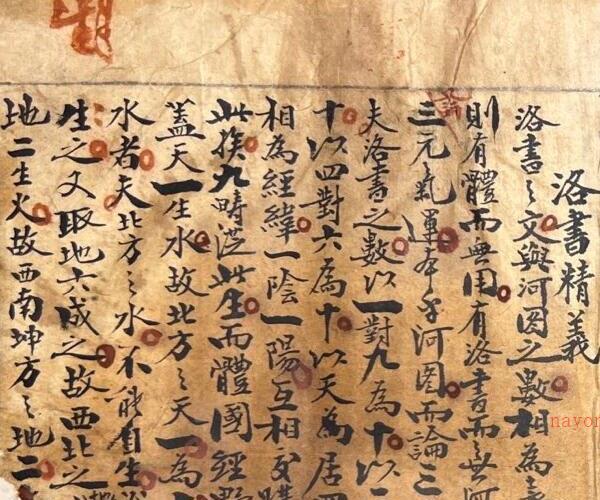 洛書精義
洛書〻文與河図之數相為
則有體而無用有洛書而無河
三元氣運本乎河図而論三
夫洛書之數以一對九為十以
十以四對六為十以天為居四
相為經緯一陰一陽互相交
此挨九疇從此生而體國經野
蓋天一生水故北方〻天一為
水者夫北方〻水不能自生
生之又取地六成之故西北之
地二生火故西南坤方〻地二
nayon